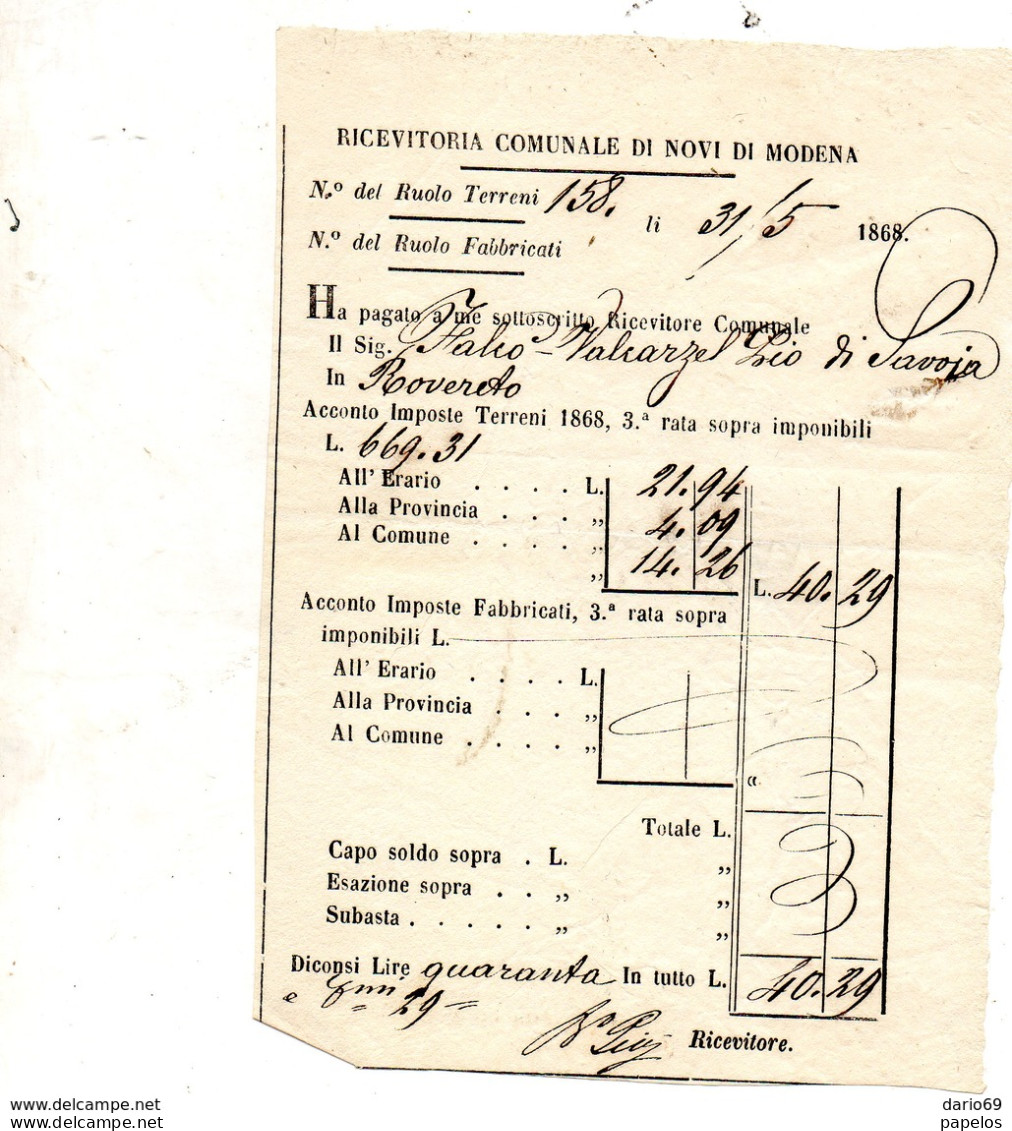 RICEVITORIA COMUNALE DI NOVI DI MODENA
N.º del Ruolo Terreni 158. li 31/5 1868.
N.º del Ruolo Fabbricati
Ha pagato a me sottoscritto Ricevitore Comunale
Il Sig. Falcò-Valcarzel Pio di Savoja
In Rovereto
Acconto Imposte Terreni 1868, 3.ª rata sopra imponibili
L. 669.31
All' Erario . . . . L. 21.94
Alla Provincia . . . „ 4.09
Al Comune . . . . „ 14.26
„ L. 40.29
Acconto Imposte Fabbricati, 3.ª rata sopra
imponibili L.
All' Erario . . . . L.
Alla Provincia . . . „
Al Comune . . . . „
«
Totale L.
Capo soldo sopra . L. „
Esazione sopra . . „ „
Subasta . . . . . „ „
Diconsi Lire quaranta In tutto L. 40.29
e Cmi 29
Ricevitore.
dario69
papelos
www.delcampe.net
www.delcampe.net